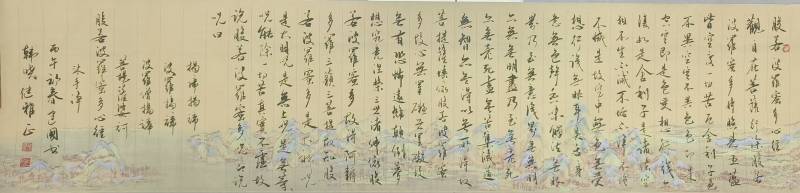 般若波羅蜜多心經
觀自在菩薩行深般若
波羅蜜多時照見五蘊
皆空度一切苦厄舍利子色
不異空空不異色色即是
空空即是色受想行識亦
復如是舍利子是諸法空
相不生不滅不垢不淨不增
不減是故空中無色無受
想行識無眼耳鼻舌身
意無色聲香味觸法無眼
界乃至無意識界無無明
亦無無明盡乃至無老死
亦無老死盡無苦集滅道
無智亦無得以無所得故
菩提薩埵依般若波羅蜜
多故心無罣礙無罣礙故
無有恐怖遠離顛倒夢
想究竟涅槃三世諸佛依般
若波羅蜜多故得阿耨
多羅三藐三菩提故知般
若波羅蜜多是大神咒
是大明咒是無上咒是無等等
咒能除一切苦真實不虛故
說般若波羅蜜多咒即說
咒曰
揭諦揭諦
波羅揭諦
波羅僧揭諦
菩提薩婆訶
般若波羅蜜多心經
沐手淨
丙午初春
雅正